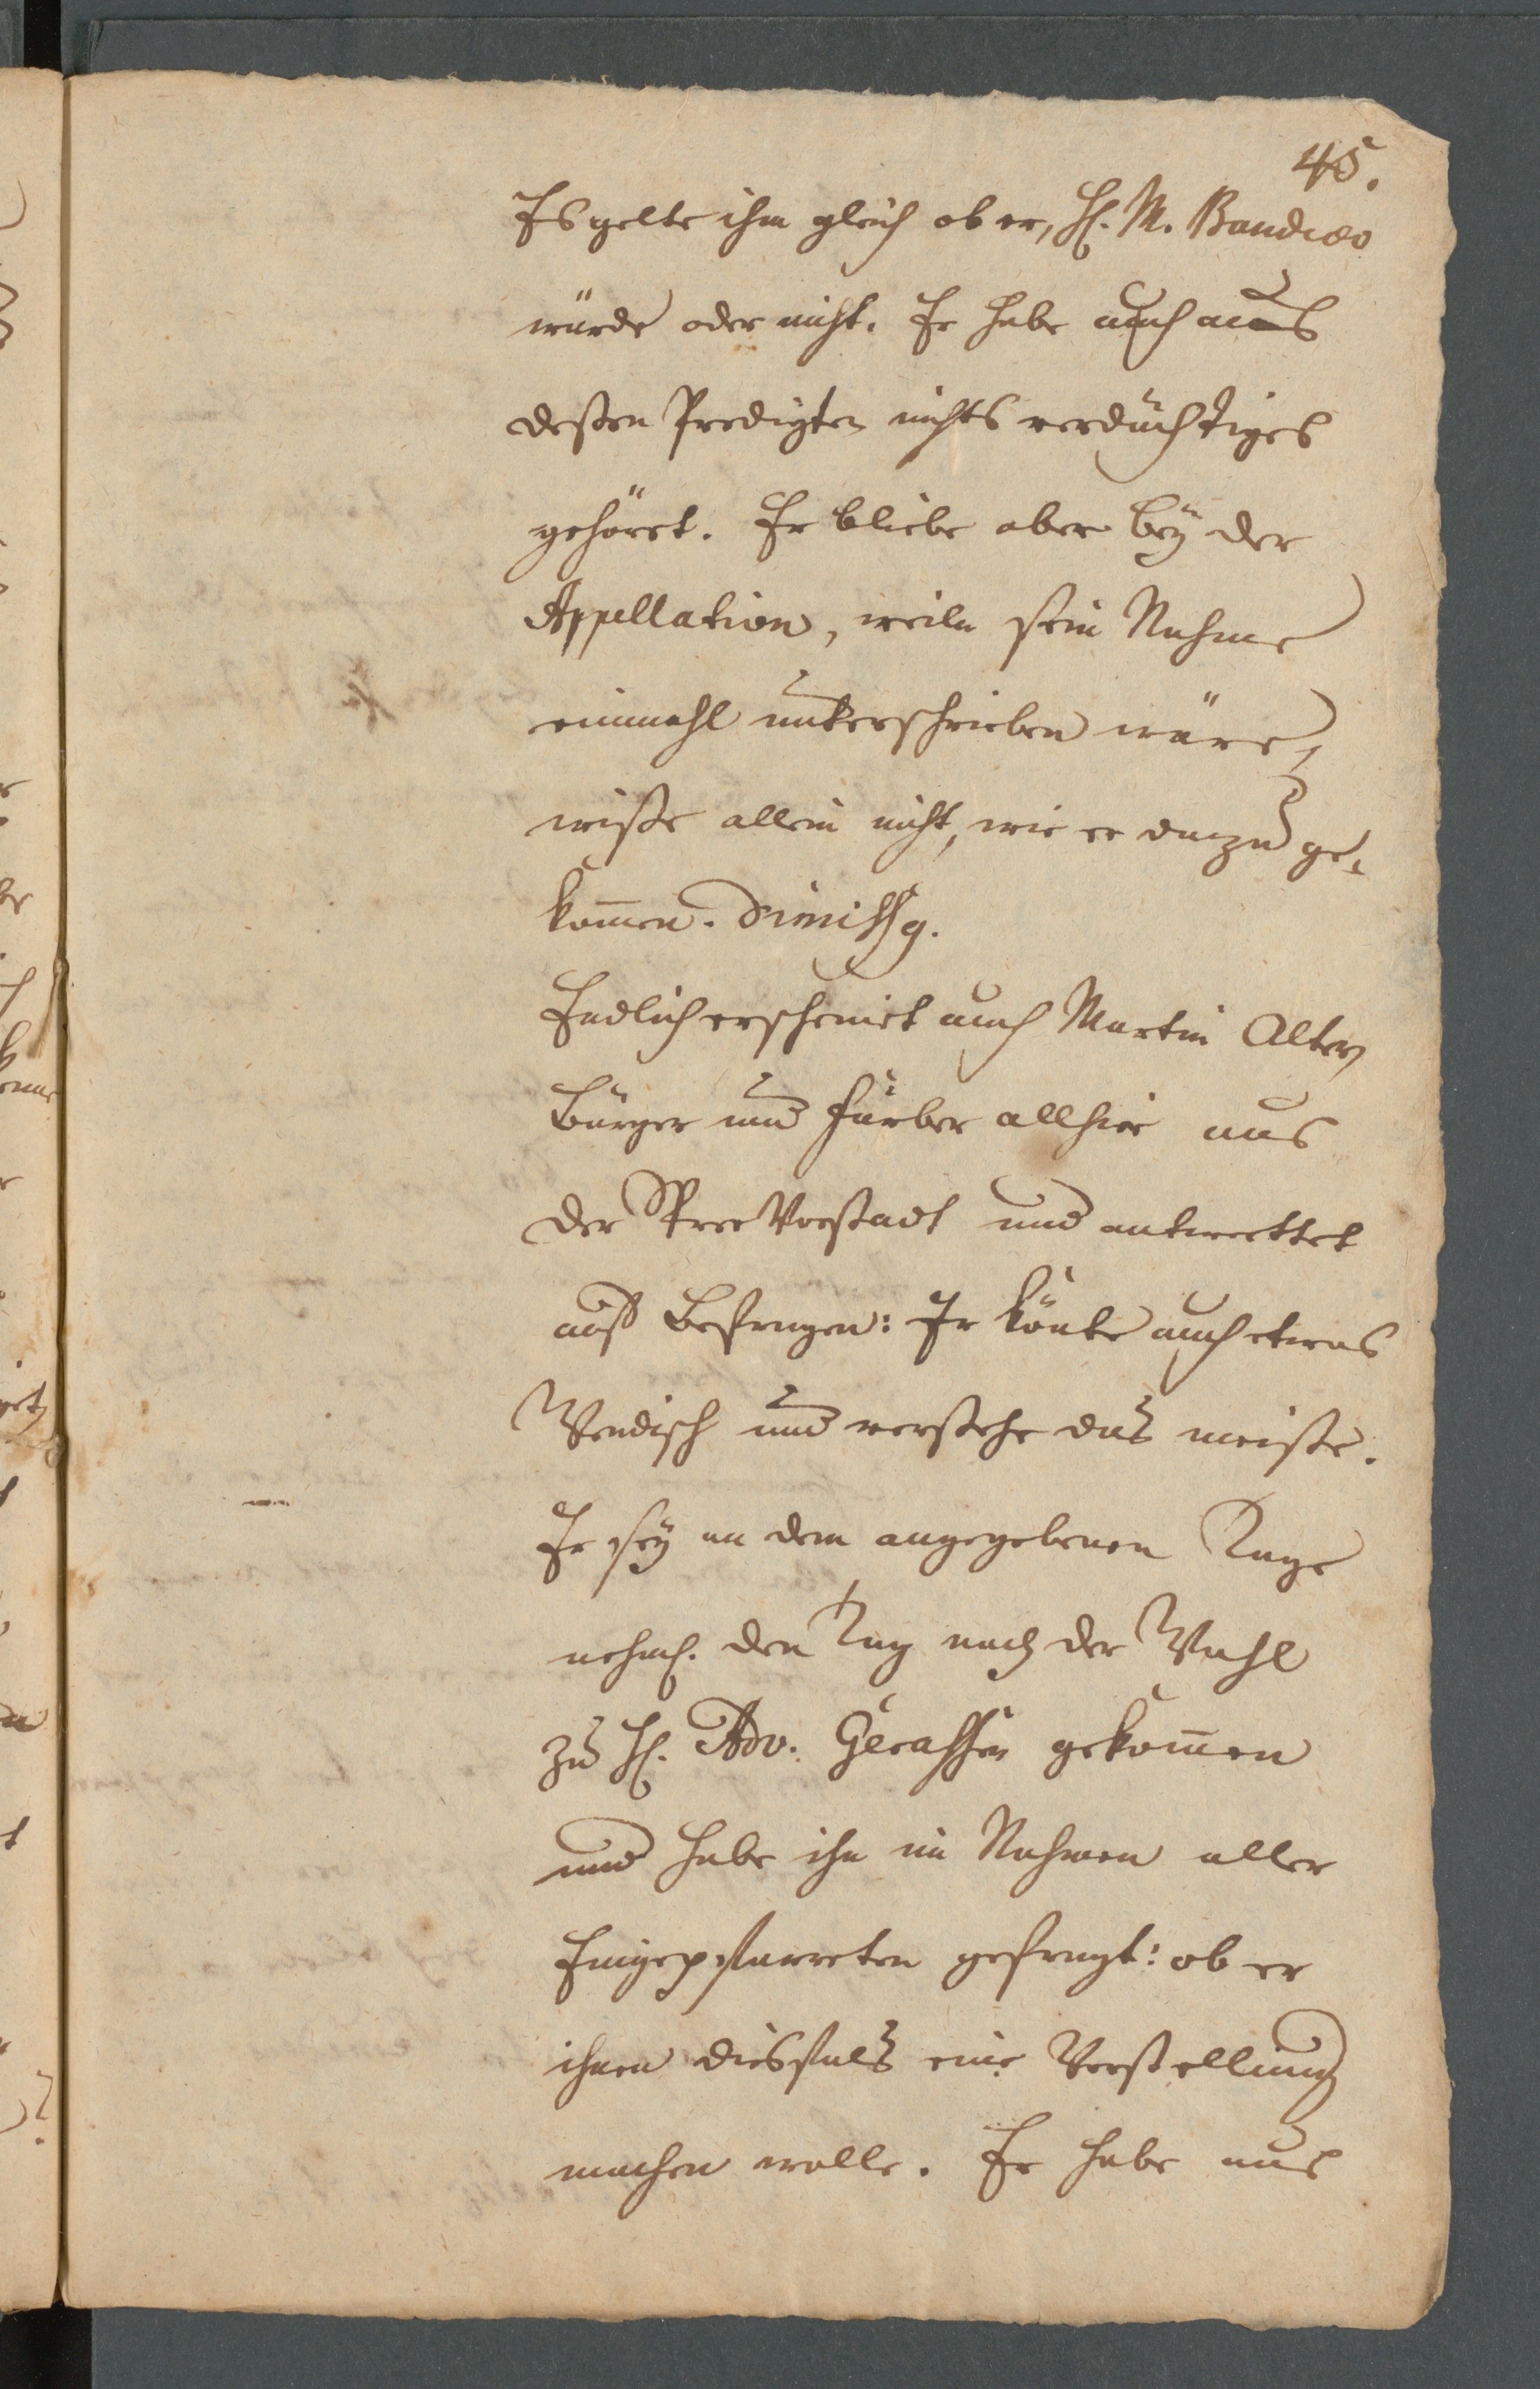 45.
Es gelte ihm gleich ob er, H. M. Bandico
würde oder nicht. Er habe auch aus
deßen Predigten nichts verdächtiges
gehöret. Er bliebe aber bey der
Appellation, weiln sein Nahme
einmahl unterschrieben wäre,
wiße allein nicht, wie er darzu ge-
kom̄en. Dimissg.
Endlich erscheinet auch Martin Alter,
Bürger und Färber allhier aus
der Spree Vorstadt und antwortet
auff Befragen: Er könte auch etwas
Wendisch und verstehe das meiste.
Er sey an dem angegebenen Tage
nehml. den Tag nach der Wahl
zu H. Adv. gekom̄en
und habe ihn im Nahmen aller
Eingepfarreten gefragt: ob er
ihnen diesfals eine Vorstellung
machen wolle. Er habe aus